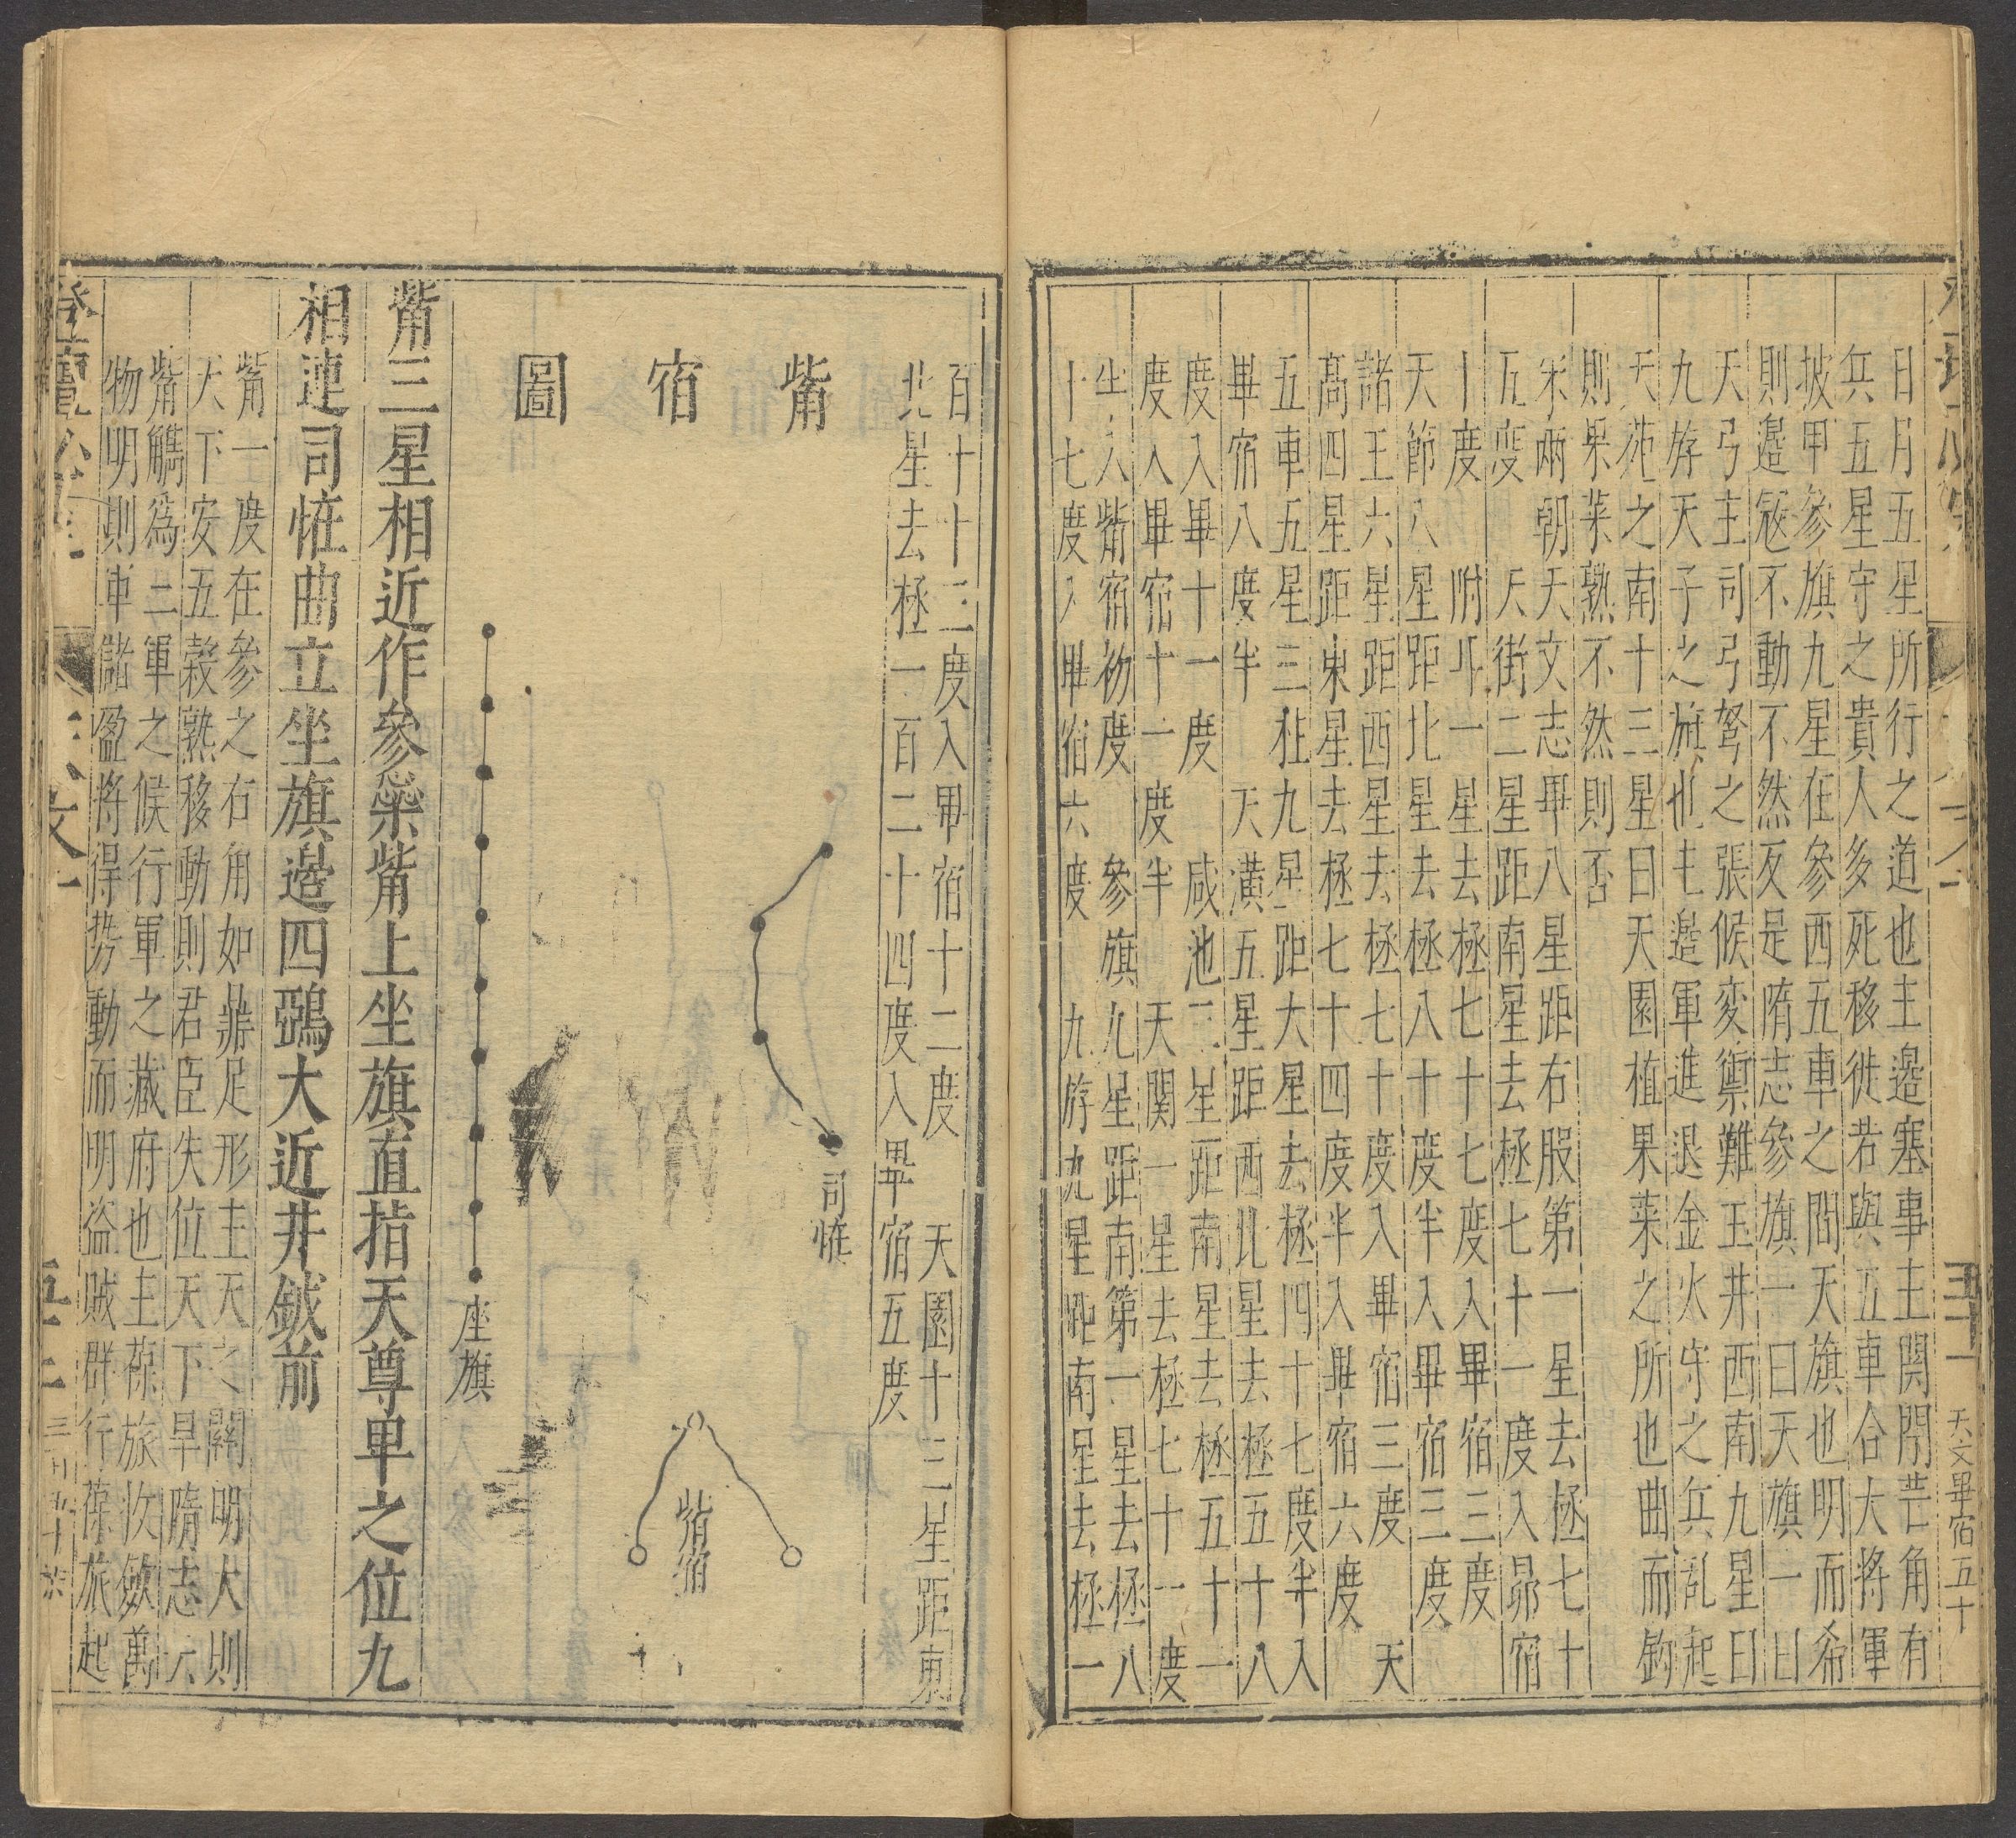 日月五星所行之道也主邉塞事主関閉芒角有
兵五星守之貴人多死移徙若與五車合大將軍
坡甲參旗九星在參西五車之間天旗也明而希
則邉宼不動不然反是隋志參旗一曰天旗一曰
天弓主司弓弩之張候変禦難玉井西南九星曰
九斿天子之旗也主邉軍進退金火守之兵乱起
天苑之南十三星曰天園植果菜之所也曲而鈎
則果菜熟不然則否
宋兩朝天文志畢八星距右股第一星去極七十
五度 天街二星距南星去極七十一度入昴宿
十度 附耳一星去極七十七度入畢宿三度
天節八星距北星去極八十度半入畢宿三度
諸王六星距西星去極七十度入畢宿三度 天
髙四星距東星去極七十四度半入畢宿六度
五車五星三柱九星距大星去極四十七度半入
畢宿八度半 天潢五星距西北星去極五十八
度入畢十一度 咸池三星距南星去極五十一
度入畢宿十一度半 天関一星去極七十一度
半入觜宿初度 參旗九星距南第一星去極八
十七度入畢宿六度 九斿九星距南星去極一
天文畢宿五十
百十十三度入畢宿十二度 天園十三星距東
北星去極一百二十四度入畢宿五度
觜宿圖
司恠
座旗
觜宿
觜三星相近作參蘂觜上坐旗直指天尊卑之位九
相連司恠曲立坐旗邉四鵶大近井鉞前
觜一度在參之右角如鼎足形主天之關明大則
天下安五榖熟移動則君臣失位天下旱隋志六
觜觿爲三軍之候行軍之藏府也主葆旅收斂萬
物明則車儲盈將得勢動而明盗賊群行葆旅起